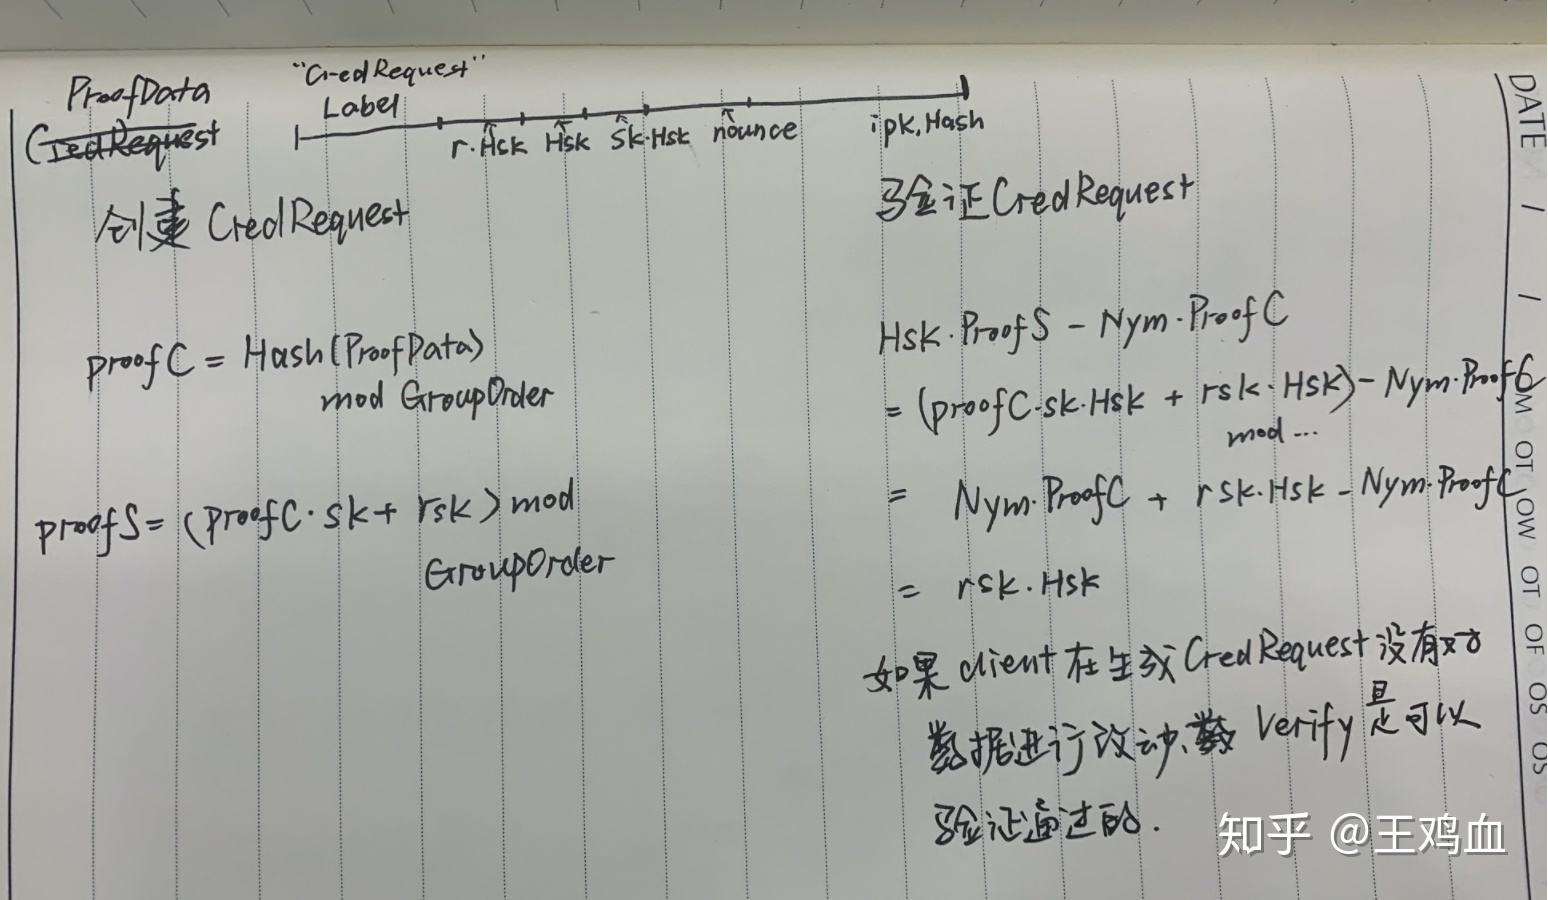 ProofData
CredRequest
"CredRequest"
Label
r.Hsk
Hsk
Sk.Hsk
nounce
ipk.Hash
创建 CredRequest
proofC = Hash(ProofData)
mod GroupOrder
proofS = (proofC·sk + rsk) mod
GroupOrder
验证CredRequest
Hsk·ProofS - Nym·ProofC
= (proofC·sk·Hsk + rsk·Hsk) - Nym·ProofC
mod ...
= Nym·ProofC + rsk·Hsk - Nym·ProofC
= rsk·Hsk
如果 client 在生成CredRequest 没有对
数据进行改动、Verify 是可以
验证通过的.
DATE / /
MO
TO
WO
TO
FO
SO
SO
知乎 @王鸡血